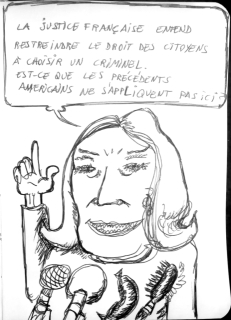 LA JUSTICE FRANÇAISE ENTEND
RESTREINDRE LE DROIT DES CITOYENS
À CHOISIR UN CRIMINEL.
EST-CE QUE LES PRÉCÉDENTS
AMÉRICAINS NE S'APPLIQUENT PAS ICI?